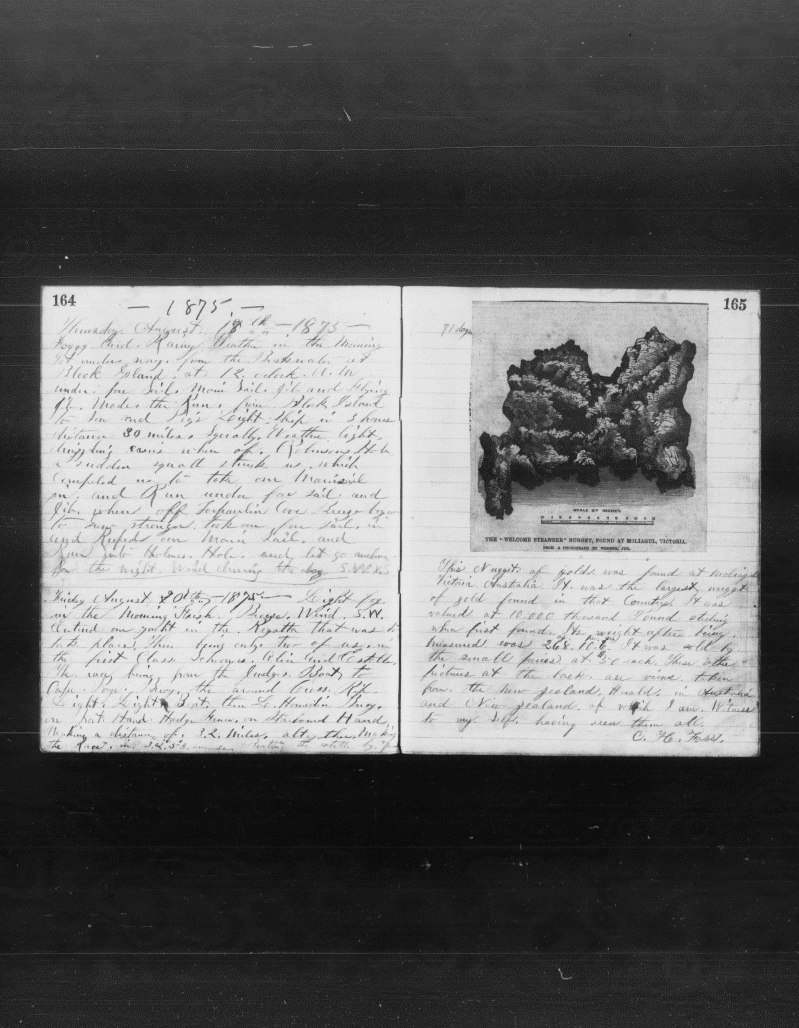 164
— 1875. —
Thursday August 18th — 1875 —
Foggy and Rainy Weather in the Morning
Got under way from the Breakwater at
Block Island at 12 oclock A. M
under fore Sail Main Sail Jib and Flying
Jib. Made the Run from Block Island
to Sow and Pigs Light Ship in 3 hours
distance 30 miles. Squally Weather light
when off Robinsons Hole
a sudden squall struck us, which
Compeled us to take our Mainsail
in, and Run under for Sail and
Jib. when off Tarpaulin Cove
to stronger. took our for Sail in
and Reefed our Main Sail. and
Run into Holmes Hole. and let go anchor
for the night Wind during the day S.W.
Friday August 20th 1875 — Light fog
in the Morning Fresh Breeze Wind. S.W.
Entered our yacht in the Regatta that was to
take place. There being only two of us. in
the first Class Schooners. Alice and Estelle
The race being from the Judges Boat to
Cape Buoy. the around Cross Rip
Light. Light Boat, then to Buoy.
on Port Hand Hedge Fence on Starboard Hand,
Making a distance of. 32. Miles. Making
the Race. in. 3.2.53. the by
165
71 days
SCALE OF INCHES.
THE "WELCOME STRANGER" NUGGET, FOUND AT MOLIAGUL, VICTORIA.
FROM A PHOTOGRAPH BY
This Nuggett of gold. was found at
Victoria Australia. It was the largest nugget
of gold found in that Country. It was
valued at 10.000 thousand Pound sterling
when first found. Its weight after being
measured was 268. It was
the small pieces at each. These other
pictures at the back. are ones. taken
from. the New zealand. Herald. in Australia
and New zealand. of which I am. Witness
to my Self. having seen them all.
C. H.